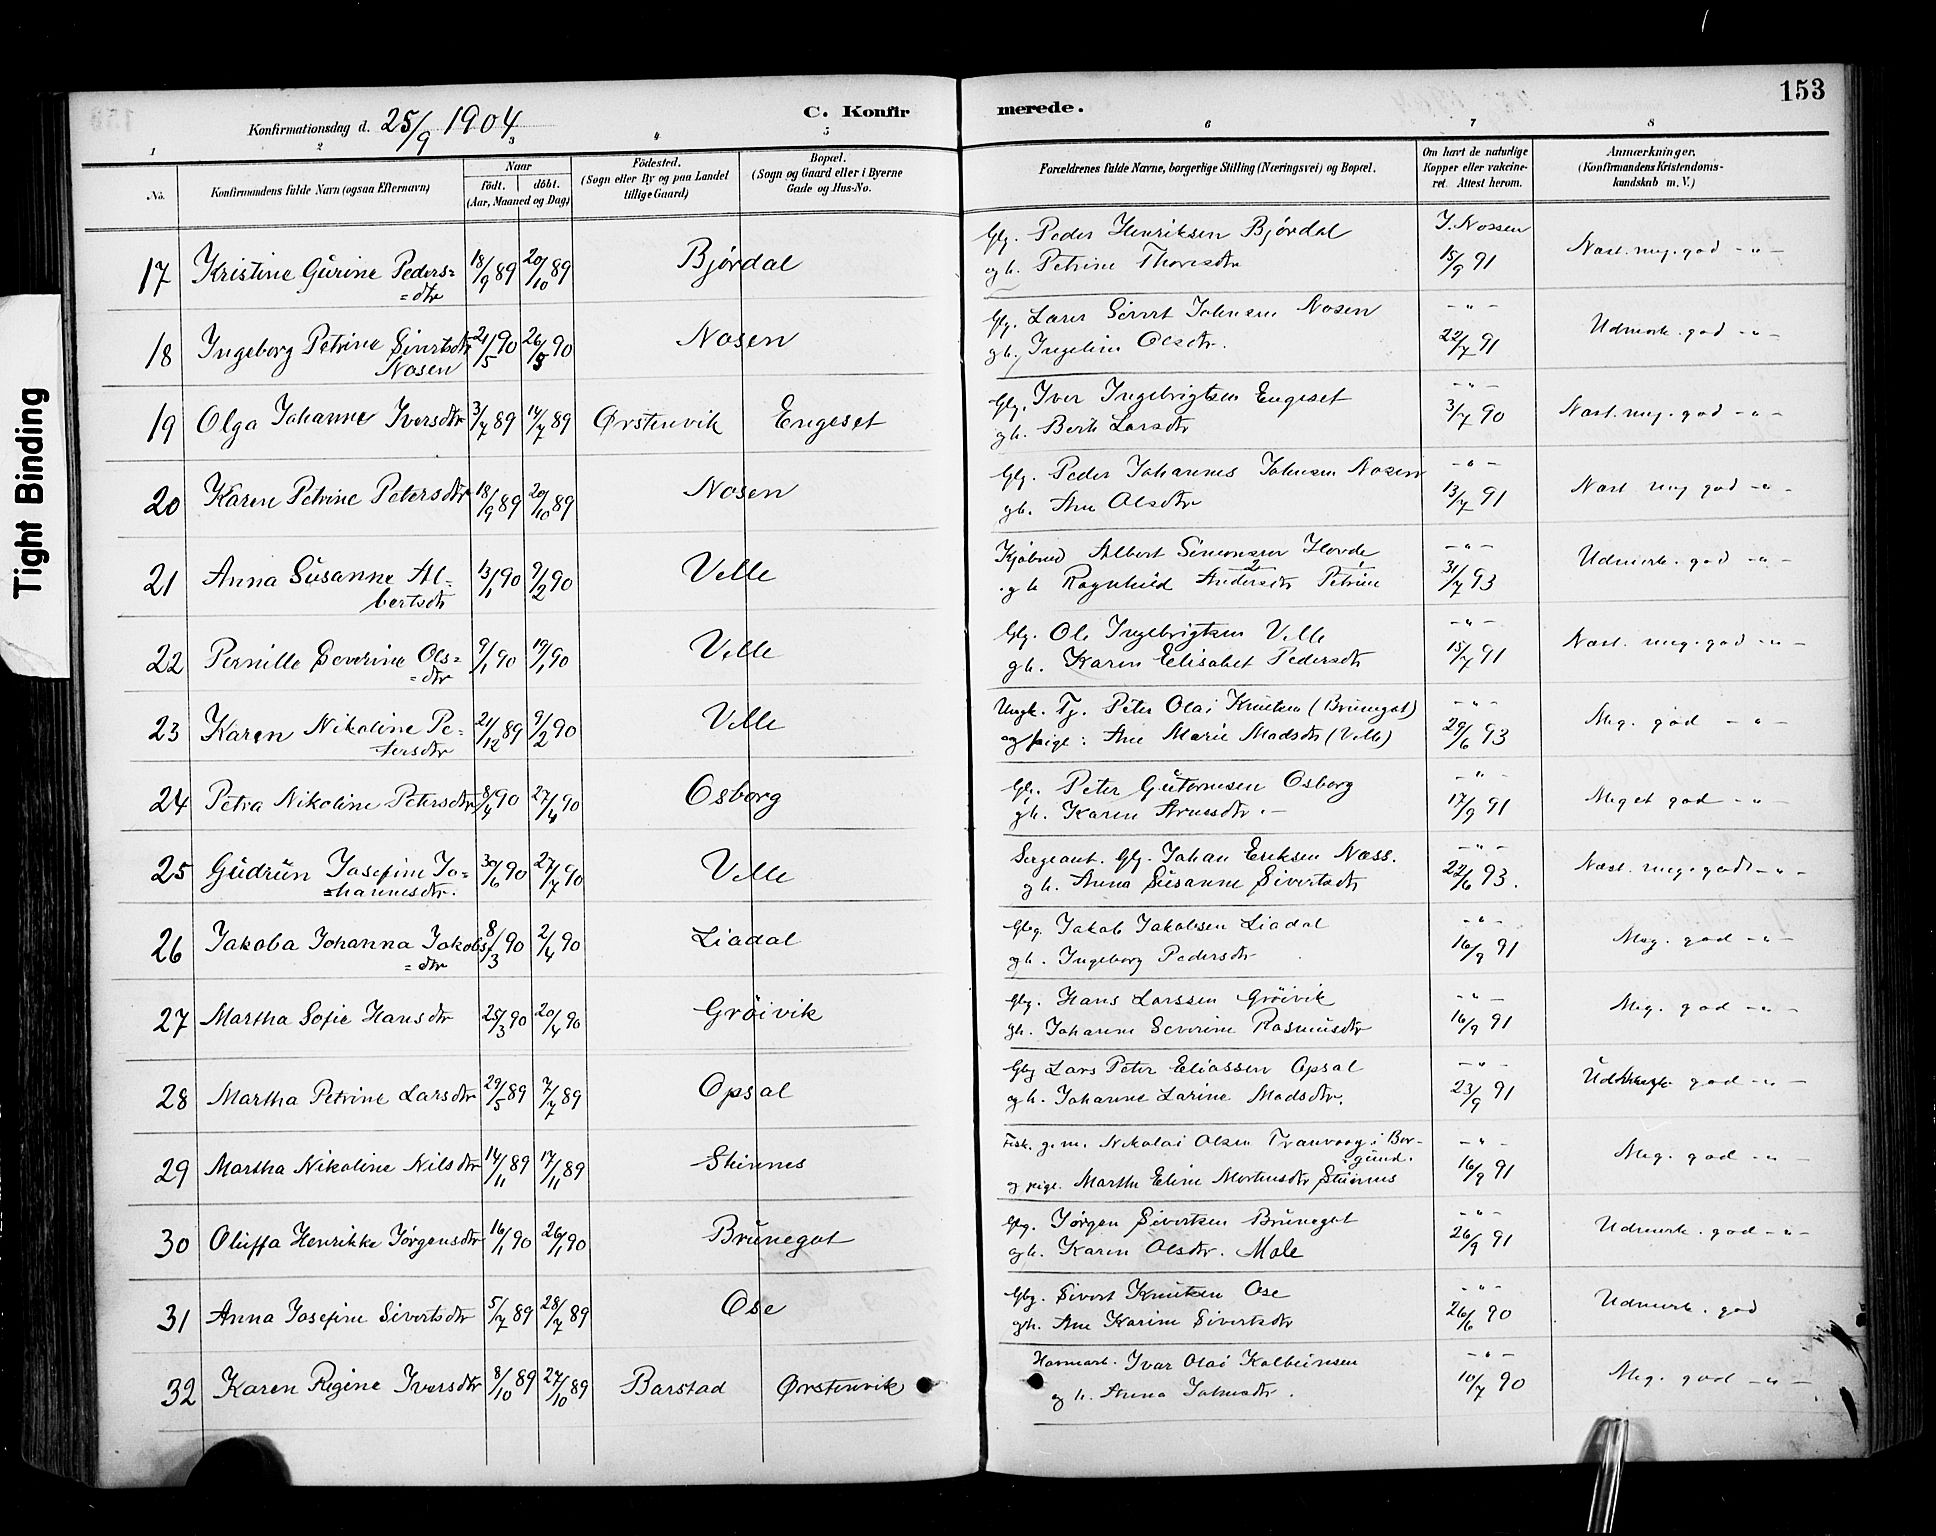 153
Konfirmationsdag d. 25/9 1904
C. Konfirmerede.
1 2 3 4 5 6 7 8
No.
Konfirmandens fulde Navn (ogsaa Efternavn)
Naar
født. døbt.
(Aar, Maaned og Dag)
Fødested.
(Sogn eller By og paa Landet
tillige Gaard)
Bopæl.
(Sogn og Gaard eller i Byerne
Gade og Hus-No.
Forældrenes fulde Navne, borgerlige Stilling (Næringsvei) og Bopæl.
Om havt de naturlige
Kopper eller vakcine-
ret. Attest herom.
Anmærkninger.
(Konfirmandens Kristendoms-
kundskab m. V.)
17 Kristine Gurine Peders= 18/9 89 20/10 89 Bjørdal
=dtr
Gbg. Peder Henriksen Bjørdal
og h. Petrine Thoresdtr
J. Nossen
15/9 91
Næst. meg. god -"-
18 Ingeborg Petrine Sivertsdtr 21/5 90 26/5 90 Nosen
Nosen
Gbg. Lærer Sivert Johnsen Nosen
gh. Ingeline Olsdtr.
-"-
22/7 91
Udmerk. god -"-
19 Olga Johanne Iversdtr 3/7 89 14/7 89 Ørstenvik Engeset
Gbg. Iver Ingebrigtsen Engeset
gh. Berte Larsdtr
-"-
3/7 90
Næst. meg. god -"-
20 Karen Petrine Petersdtr 18/9 89 20/10 89 Nosen
Gbg. Peder Johannes Johnsen Nosen
gh. Ane Olsdtr
-"-
13/7 91
Næst meg god -"-
21 Anna Susanne Al- 13/1 90 9/2 90 Velle
bertsdtr
Albert Simonsen Hovde
2
gh Ragnhild Andersdtr Petrine
-"-
31/7 93
Udmerk. god -"-
22 Pernille Severine Ols= 9/1 90 19/1 90 Velle
=dtr
Gbg. Ole Ingebrigtsen Velle
gh. Karen Elisabet Pedersdtr
-"-
15/7 91
Næst. meg. god -"-
23 Karen Nikoline Pe- 21/12 89 9/2 90 Velle
tersdtr
Ungk. Tj. Peter Olai Knutsen (Brunegot)
og pige: Ane Marie Madsdtr (Velle)
-"-
29/6 93
Meg. god -"-
24 Petra Nikoline Petersdtr 8/4 90 27/4 90 Osborg
Gbg. Peter Guttormsen Osborg
gh. Karen Arnesdtr. -
-"-
17/9 91
Meget god -"-
25 Gudrun Josefine Jo= 30/6 90 27/7 90 Velle
=hannesdtr.
Sergeant. Gbg. Johan Eriksen Næss.
gh. Anna Susanne Sivertsdtr
-"-
22/6 93.
Næst. meg. godt -"-
26 Jakoba Johanna Jakobs= 8/3 90 2/4 90 Liadal
=dtr
Gbg. Jakob Jakobsen Liadal
og h. Ingeborg Pedersdtr
-"-
16/9 91
Meg. god -"-
27 Martha Sofie Hansdtr 25/3 90 20/4 90 Grøivik
Gbg. Hans Larssen Grøivik
gh. Johanne Severine Rasmusdtr
-"-
16/9 91
Meg. god -"-
28 Martha Petrine Larsdtr 29/5 89 7/7 89 Opsal
Gbg Lars Peter Eliassen Opsal
og h. Johanne Larine Madsdtr.
-"-
23/9 91
Udmerk. god -"-
29 Martha Nikoline Nilsdtr 14/11 89 17/11 89 Stinnes
Fisk. g.m. Nikolai Olsen Tranvaag i Bor-
gund.
og pige. Marthe Eline Mortensdtr Stinnes
-"-
16/9 91
Meg. god -"-
30 Oluffa Henrikke Jørgensdtr 16/1 90 26/1 90 Brunegot
Gbg. Jørgen Sivertsen Brunegot
og h. Karen Olsdtr. Male
-"-
26/9 91
Udmerk. god -"-
31 Anna Josefine Sivertsdtr 5/7 89 28/7 89 Ose
Gbg. Sivert Knutsen Ose
gh. Ane Karine Sivertsdtr
-"-
26/6 90
Udmerk. god
32 Karen Regine Iversdtr 8/10 89 27/10 89 Barstad Ørstenvik
Ivar Olai Kolbeinsen
og h. Anna Johnsdtr.
-"-
10/7 90
Meg. god -"-
Tight Binding